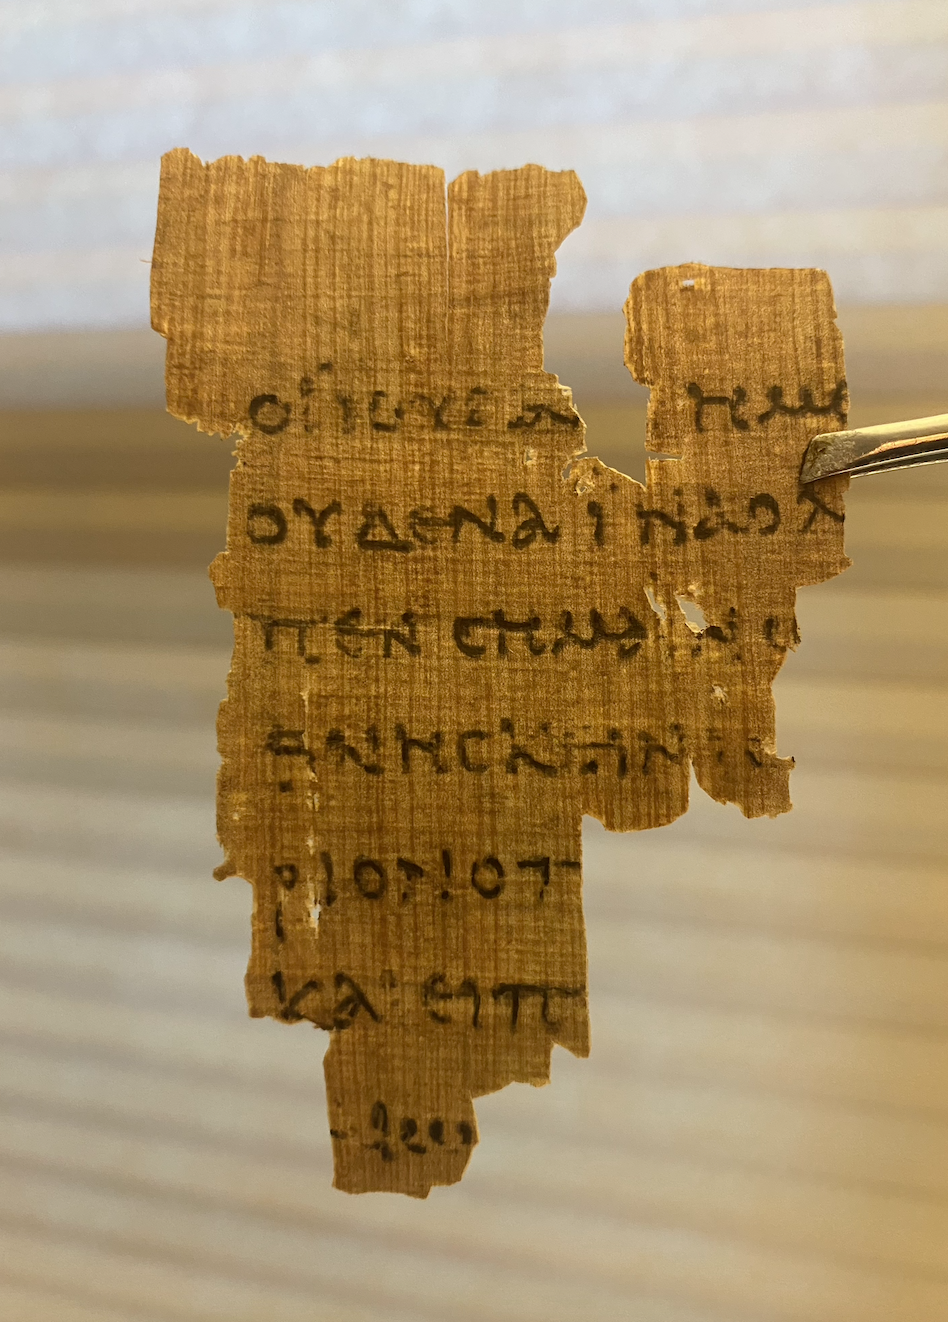 ΟΙ ΙΟΥΔΑΙ ΗΜΙ
ΟΥΔΕΝΑ ΙΝΑ Ο Λ
ΠΕΝ ΣΗΜΑΙΝΩ
ΘΝΗΣΚΕΙΝ ΙΣ
ΡΙΟΝ Ο Π
ΚΑΙ ΕΙΠ